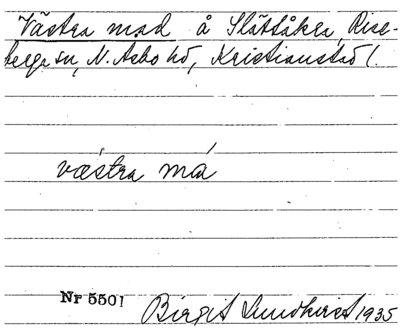 Västra mad å Slättåkra, Rise-
berga sn, N. Asbo hd, Kristianstad l.
västra má
Nr 5501
Birgit Lundkvist 1935